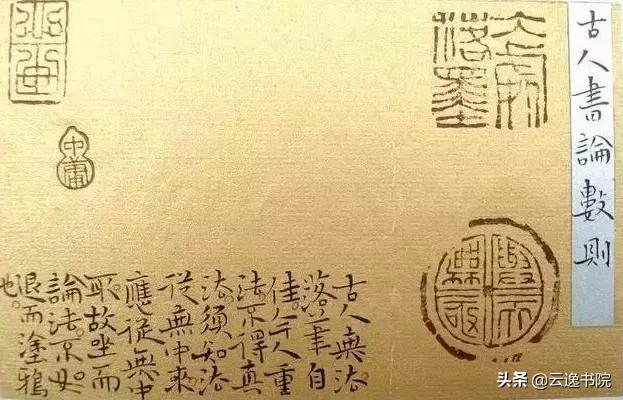 古人書論數則
大處落墨
古人無法
落筆自
佳今人重
法不得真
法須知法
從無中來
應從無中
取故坐而
論法。不如
退而塗鴉
也。
头条 @云逸书院